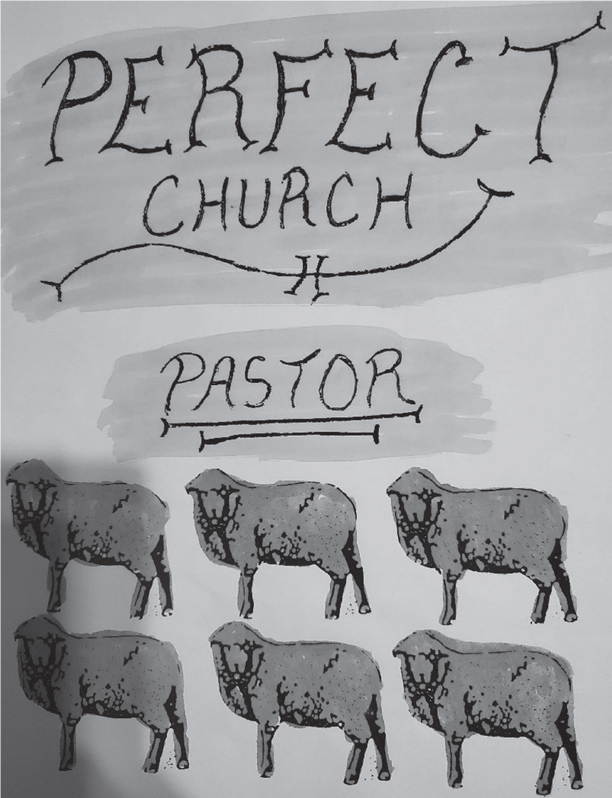 PERFECT
CHURCH
H
PASTOR